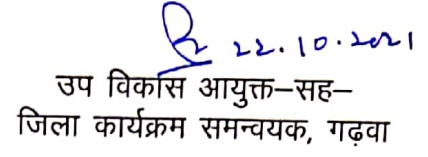 22.10.2021
उप विकास आयुक्त–सह–
जिला कार्यक्रम समन्वयक, गढ़वा